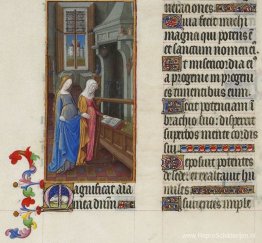 Magnificat aīa
mea dnm.
nerationes.
Quia fecit michi
magna qui potens e
et sanctum nomen e
Et misericordia ei
a progenie in progeni
es timentibus eum
Fecit potenciam in
brachio suo: dispersit
superbos mente cordis
sui
Deposuit potentes de
sede: et exaltauit hu
miles
Esurientes imple